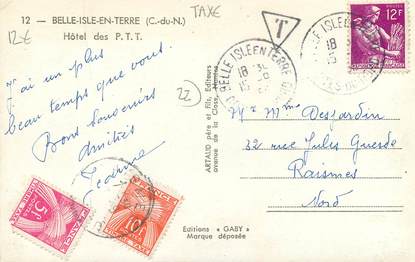 12 — BELLE-ISLE-EN-TERRE (C.-du-N.)
Hôtel des P. T. T.
12€
TAXE
22
J'ai un plus
beau temps que vous.
Bons Souvenirs
Amitiés
Jeanine
ARTAUD père et fils, Editeurs
avenue de la Close, Nantes
Editions "GABY"
Marque déposée
T
BELLE ISLE EN TERRE
18
15
12F
18
15
Mr Mme Desjardin
32 rue Jules Guesde
Raismes
Nord
5F
FRANCE
FRANCE